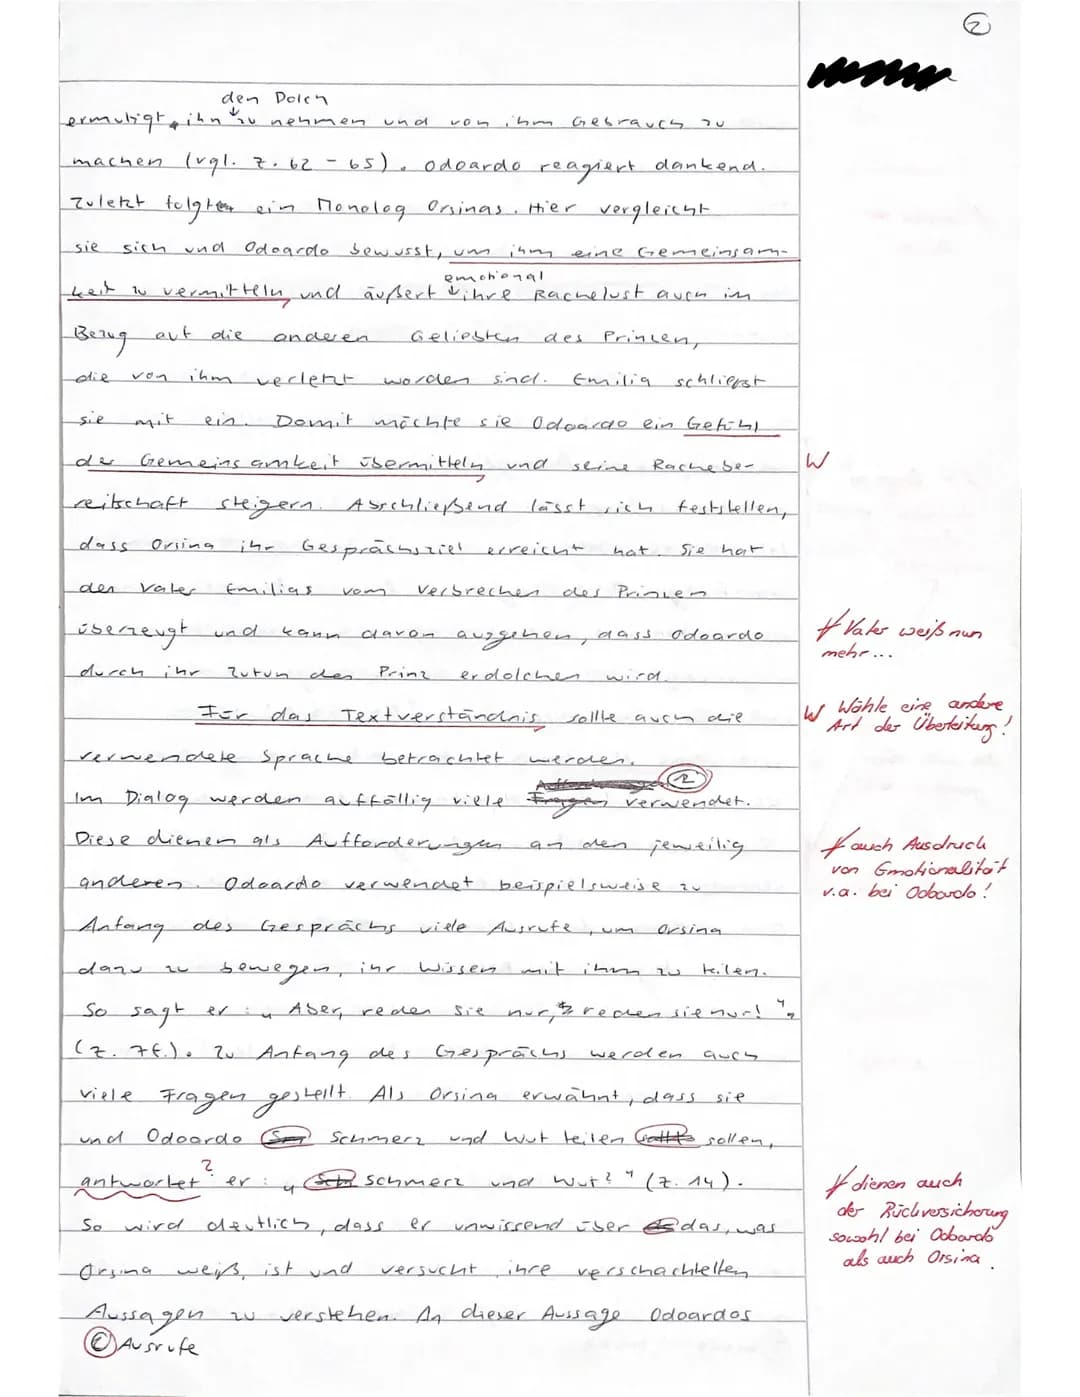 2
den Dolch
ermutigt, ihn zu nehmen und von ihm Gebrauch zu
machen (vgl. Z. 62 - 65). Odoardo reagiert dankend.
Zuletzt folgt ein Monolog Orsinas. Hier vergleicht
sie sich und Odoardo bewusst, um ihm eine Gemeinsam-
emotional
keit zu vermitteln und äußert ihre Rachelust auch im
Bezug auf die anderen Geliebten des Prinzen,
die von ihm verletzt worden sind. Emilia schliepst
sie mit ein. Damit möchte sie Odoardo ein Gefühl
der Gemeinsamkeit übermitteln und seine Rachebe- W
reitschaft steigern. Abschließend lässt sich feststellen,
dass Orsina ihr Gesprächsziel erreicht hat. Sie hat
den Vater Emilias vom Verbrechen des Prinzen
überzeugt und kann davon ausgehen, dass Odoardo
durch ihr Zutun den Prinz erdolchen wird.
Vater weiß nun
mehr...
Für das Textverständnis sollte auch die
verwendete Sprache betrachtet werden.
W Wähle eine andere
Art der Überleitung!
2
Im Dialog werden auffällig viele Fragen verwendet.
Diese dienen als Aufforderungen an den jeweilig
anderen. Odoardo verwendet beispielsweise zu
auch Ausdruck
von Emotionalität
v.a. bei Odoardo!
Anfang des Gesprächs viele Ausrufe, um Orsina
dazu zu bewegen, ihr Wissen mit ihm zu teilen.
So sagt er: „Aber, reden sie nur, reden sie nur!",
(Z. 7f.). Zu Anfang des Gesprächs werden auch
viele Fragen gestellt. Als Orsina erwähnt, dass sie
und Odoardo Schmerz und Wut teilen sollen,
?
antwortet er: „Schmerz und Wut?" (Z. 14).
So wird deutlich, dass er unwissend über das, was
Orsina weiß, ist und versucht, ihre verschachtelten
dienen auch
der Rückversicherung
sowohl bei Odoardo
als auch Orsina.
Aussagen zu verstehen. An dieser Aussage Odoardos
Ausrufe